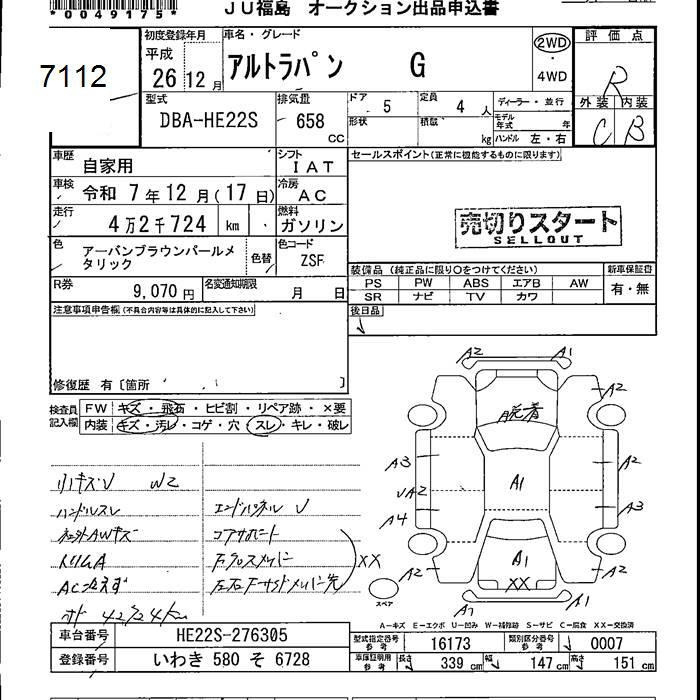 *0049175*
JU福島 オークション出品申込書
7112
初度登録年月 車名・グレード 評価点
平成 26 12 月 アルトラパン G 2WD ・ 4WD R
型式 DBA-HE22S 排気量 658 CC
ドア 5 定員 4 人 ディーラー・並行 外装 内装
形状 積載 kg モデル年式 年 ハンドル 左・右 C B
車歴 自家用 シフト IAT セールスポイント(正常に機能するものに限ります)
車検 令和 7 年 12 月 ( 17 日) 冷房 AC
走行 4万2千724 km 燃料 ガソリン 売切りスタート
SELLOUT
色 アーバンブラウンパールメタリック 色替 色コード ZSF
装備品 (純正品に限り○をつけてください) 新車保証書
PS PW ABS エアB AW 有・無
SR ナビ TV カワ
R券 9,070 円 名変通知期限 月 日
後日品
注意事項申告欄(不具合内容等は具体的に記入して下さい)
修復歴 有〔箇所 〕
検査員記入欄 FW キズ・飛石・ヒビ割・リペア跡・×要
内装 キズ・汚レ・コゲ・穴・スレ・キレ・破レ
小キズU W2
ハンドルスレ エンドパネル U
AWキズ コアサポート
トリムA XX
脱着
A2 A1
A2
A3 A1 A2
UA2
A4 A3
A2 A1 A2
XX
スペア
A1
A-キズ E-エクボ U-凹み W-補修跡 S-サビ C-腐食 XX-交換済
車台番号 HE22S-276305 型式指定番号 参考 16173 類別区分番号 参考 0007
登録番号 いわき 580 そ 6728 車庫証明用 参考 長さ 339 cm 幅 147 cm 高さ 151 cm